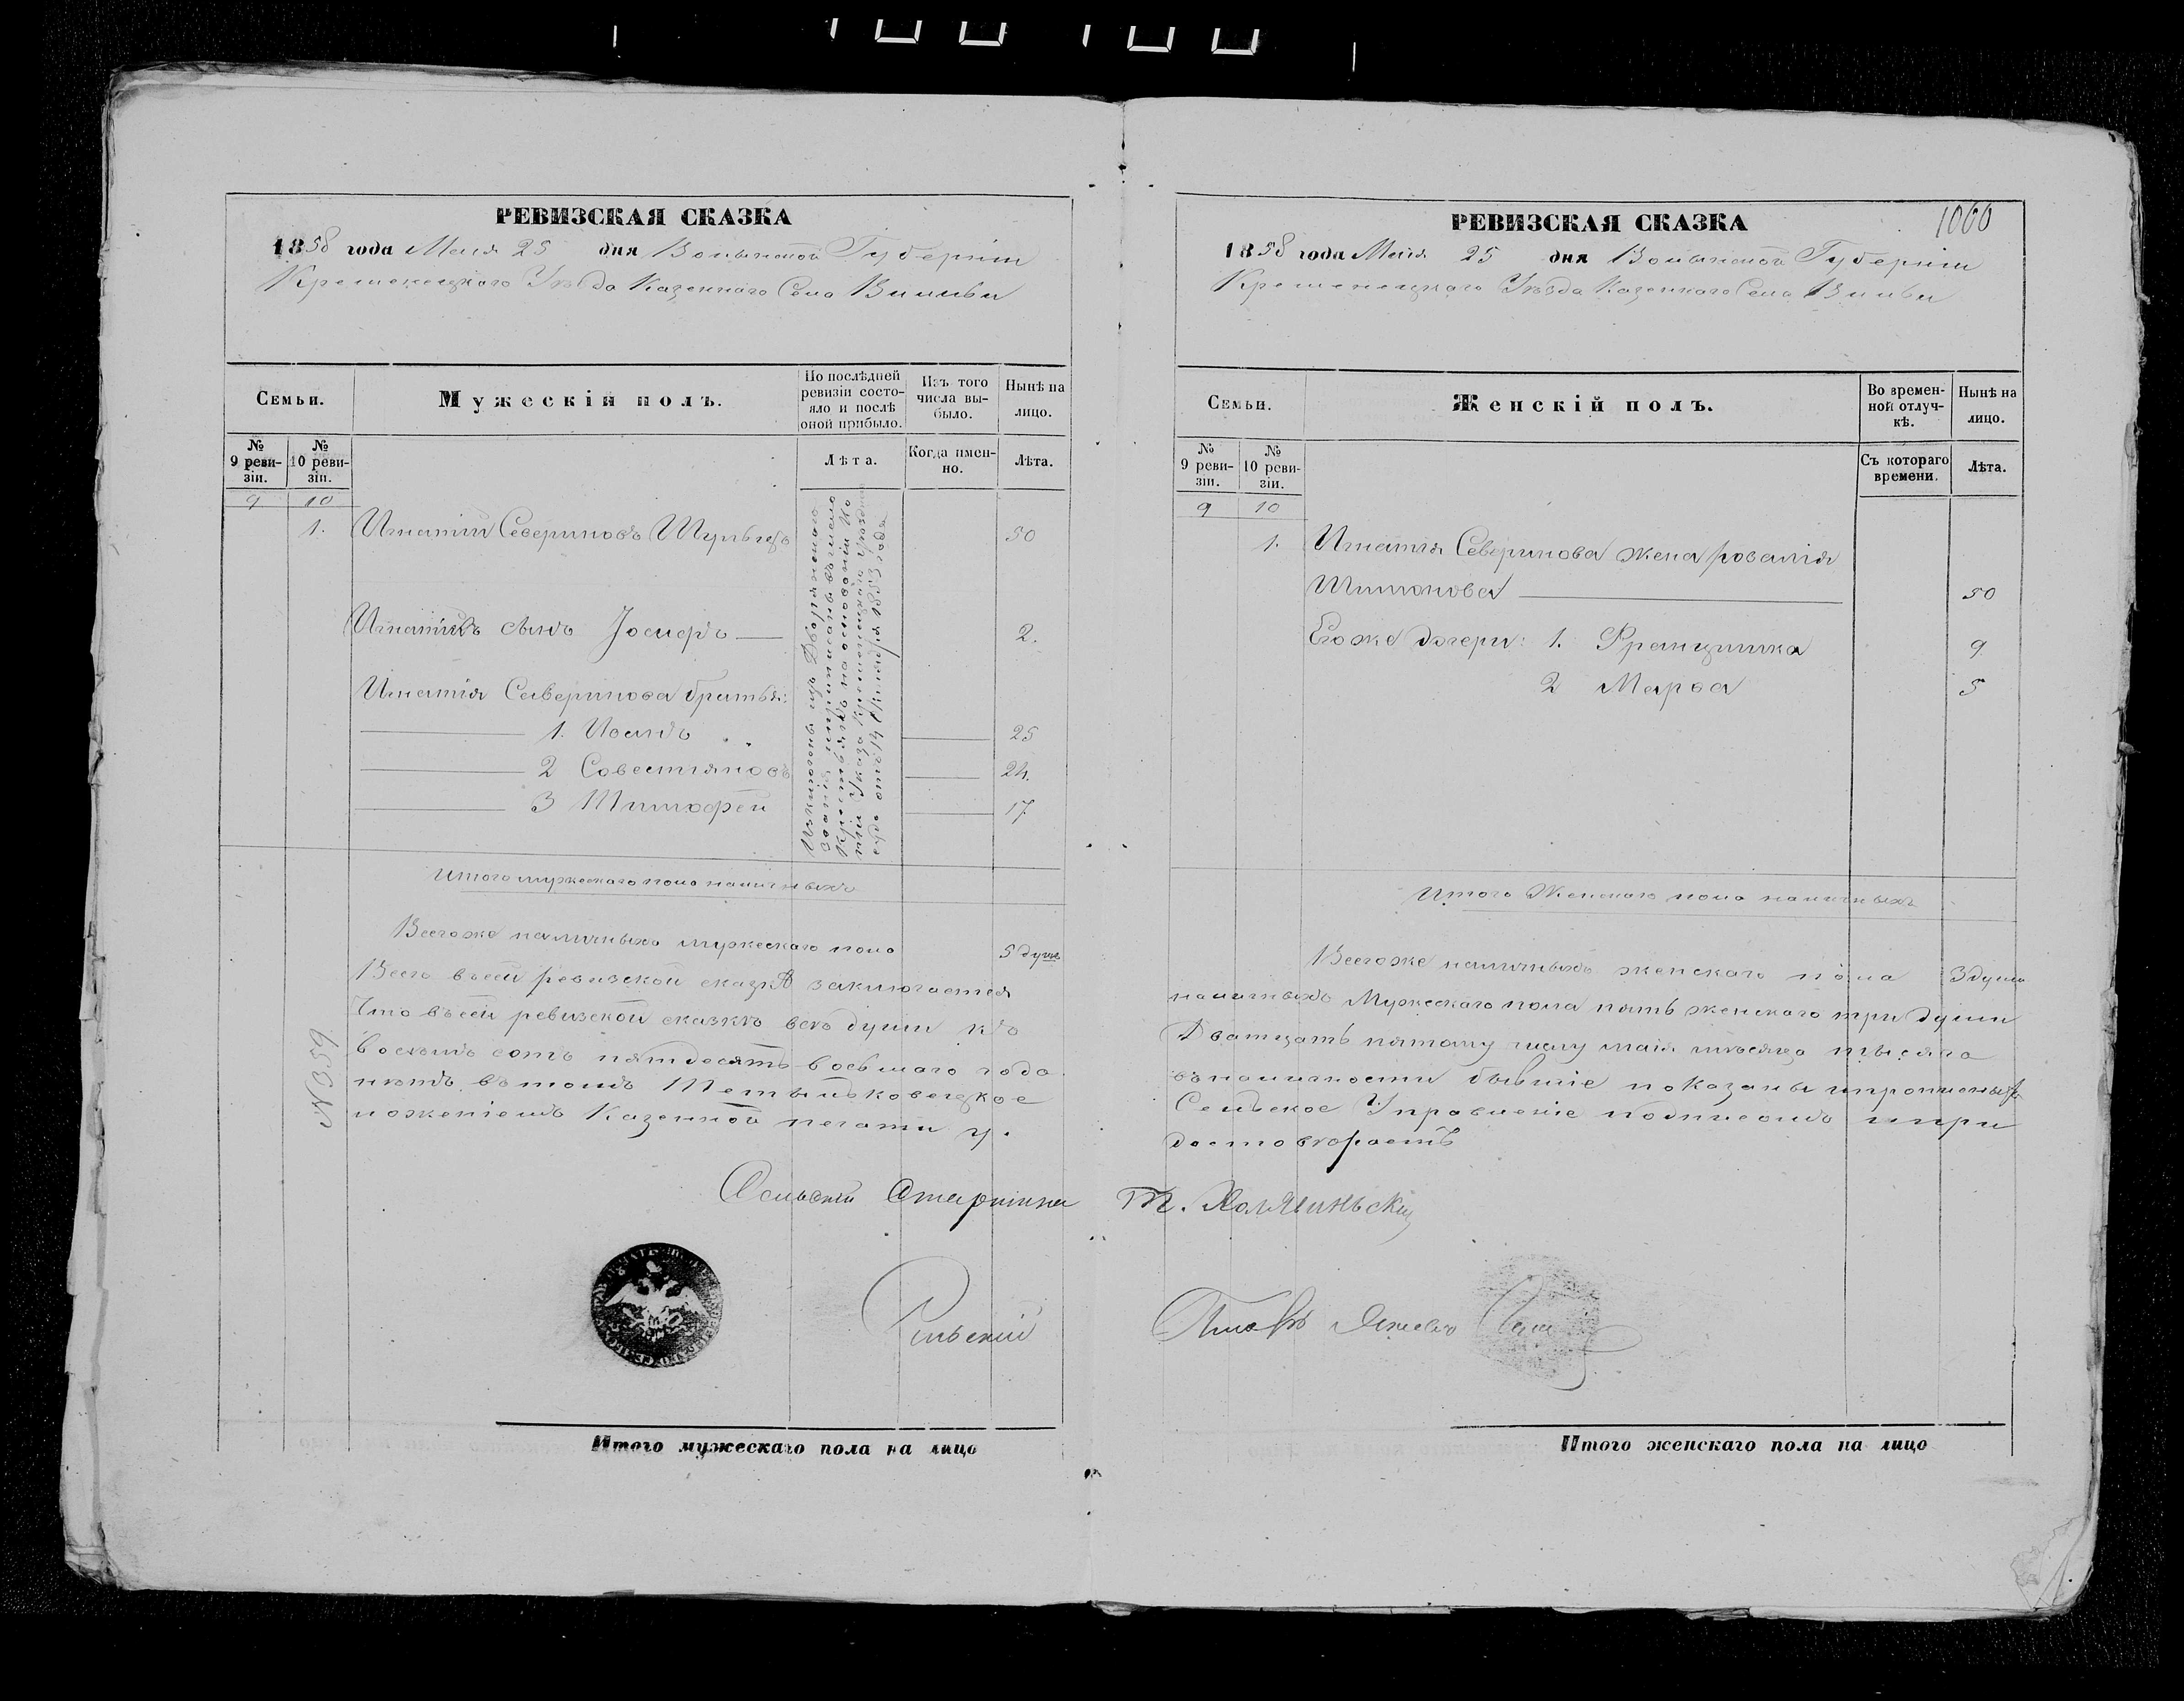 РЕВИЗСКАЯ СКАЗКА
1858 года Мая 25 дня Волынской Губерніи
Кременецкого Уѣзда Казенного Села Вильи
Семьи.
Мужескій полъ.
По послѣдней ревизіи состояло и послѣ оной прибыло.
Изъ того числа выбыло.
Нынѣ на лицо.
№ 9 ревизіи.
№ 10 ревизіи.
Лѣта.
Когда именно.
Лѣта.
9 10
1. Игнатій Севериновъ 50
Игнатія сынъ Іосифъ 2.
Игнатія Северинова братья:
1. Иванъ 25
2 Совестіяновъ 24.
3 Тимофей 17
изъ Дворянского
званія и приписанъ въ число
Крестьянъ на основаніи Ко
піи Указа Кременецкого уѣзднаго
суда отъ 14 1853 года
Итого мужескаго пола наличныхъ
Всего же наличныхъ мужескаго пола 5 душъ
Всего въ сей ревизской сказкѣ заключается
Что въ сей ревизской сказкѣ всѣ души къ
восемь сотъ пятдесятъ восьмаго года
нѣтъ, въ томъ
ложеніемъ Казенной печати у.
№ 359
Сельскій Старшина
Итого мужескаго пола на лицо
1060
РЕВИЗСКАЯ СКАЗКА
1858 года Мая 25 дня Волынской Губерніи
Кременецкаго Уѣзда Казенного Села Вильи
Семьи.
Женскій полъ.
Во временной отлучкѣ.
Нынѣ на лицо.
№ 9 ревизіи.
№ 10 ревизіи.
Съ котораго времени.
Лѣта.
9 10
1. Игнатія Северинова жена розалія
50
Его же дочери: 1. Францишка 9
2 Марва 5
Итого Женскаго пола наличныхъ
Всего же наличныхъ женскаго пола 3 души
наличныхъ Мужескаго пола пять женскаго три души
Дватцать пятому числу мая мѣсяца тысяча
въ наличности бывшіе показаны и прописныхъ
Сельское Управленіе подписомъ и при
достовѣряетъ
Итого женскаго пола на лицо